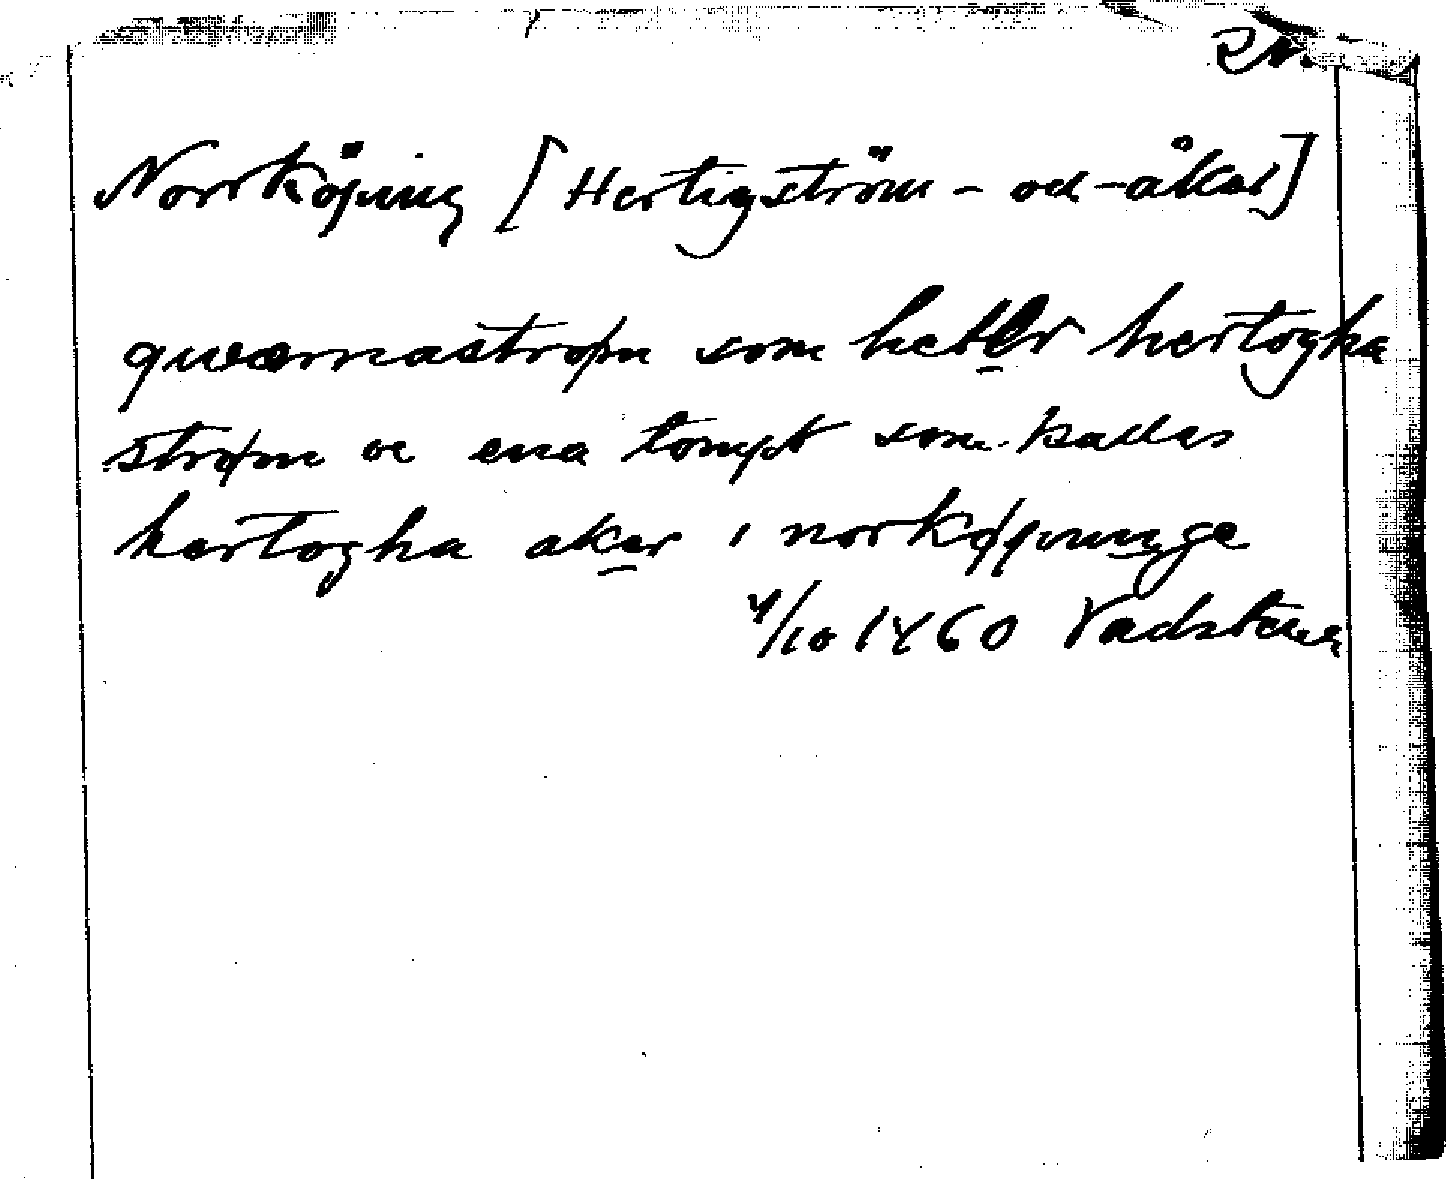 Norrköping [Hertigström - och -åker]
quærnastrøm som heter hertogha
strøm oc ena tompt som kallas
hertogha aker i norkøpunge
4/10 1460 Vadstena